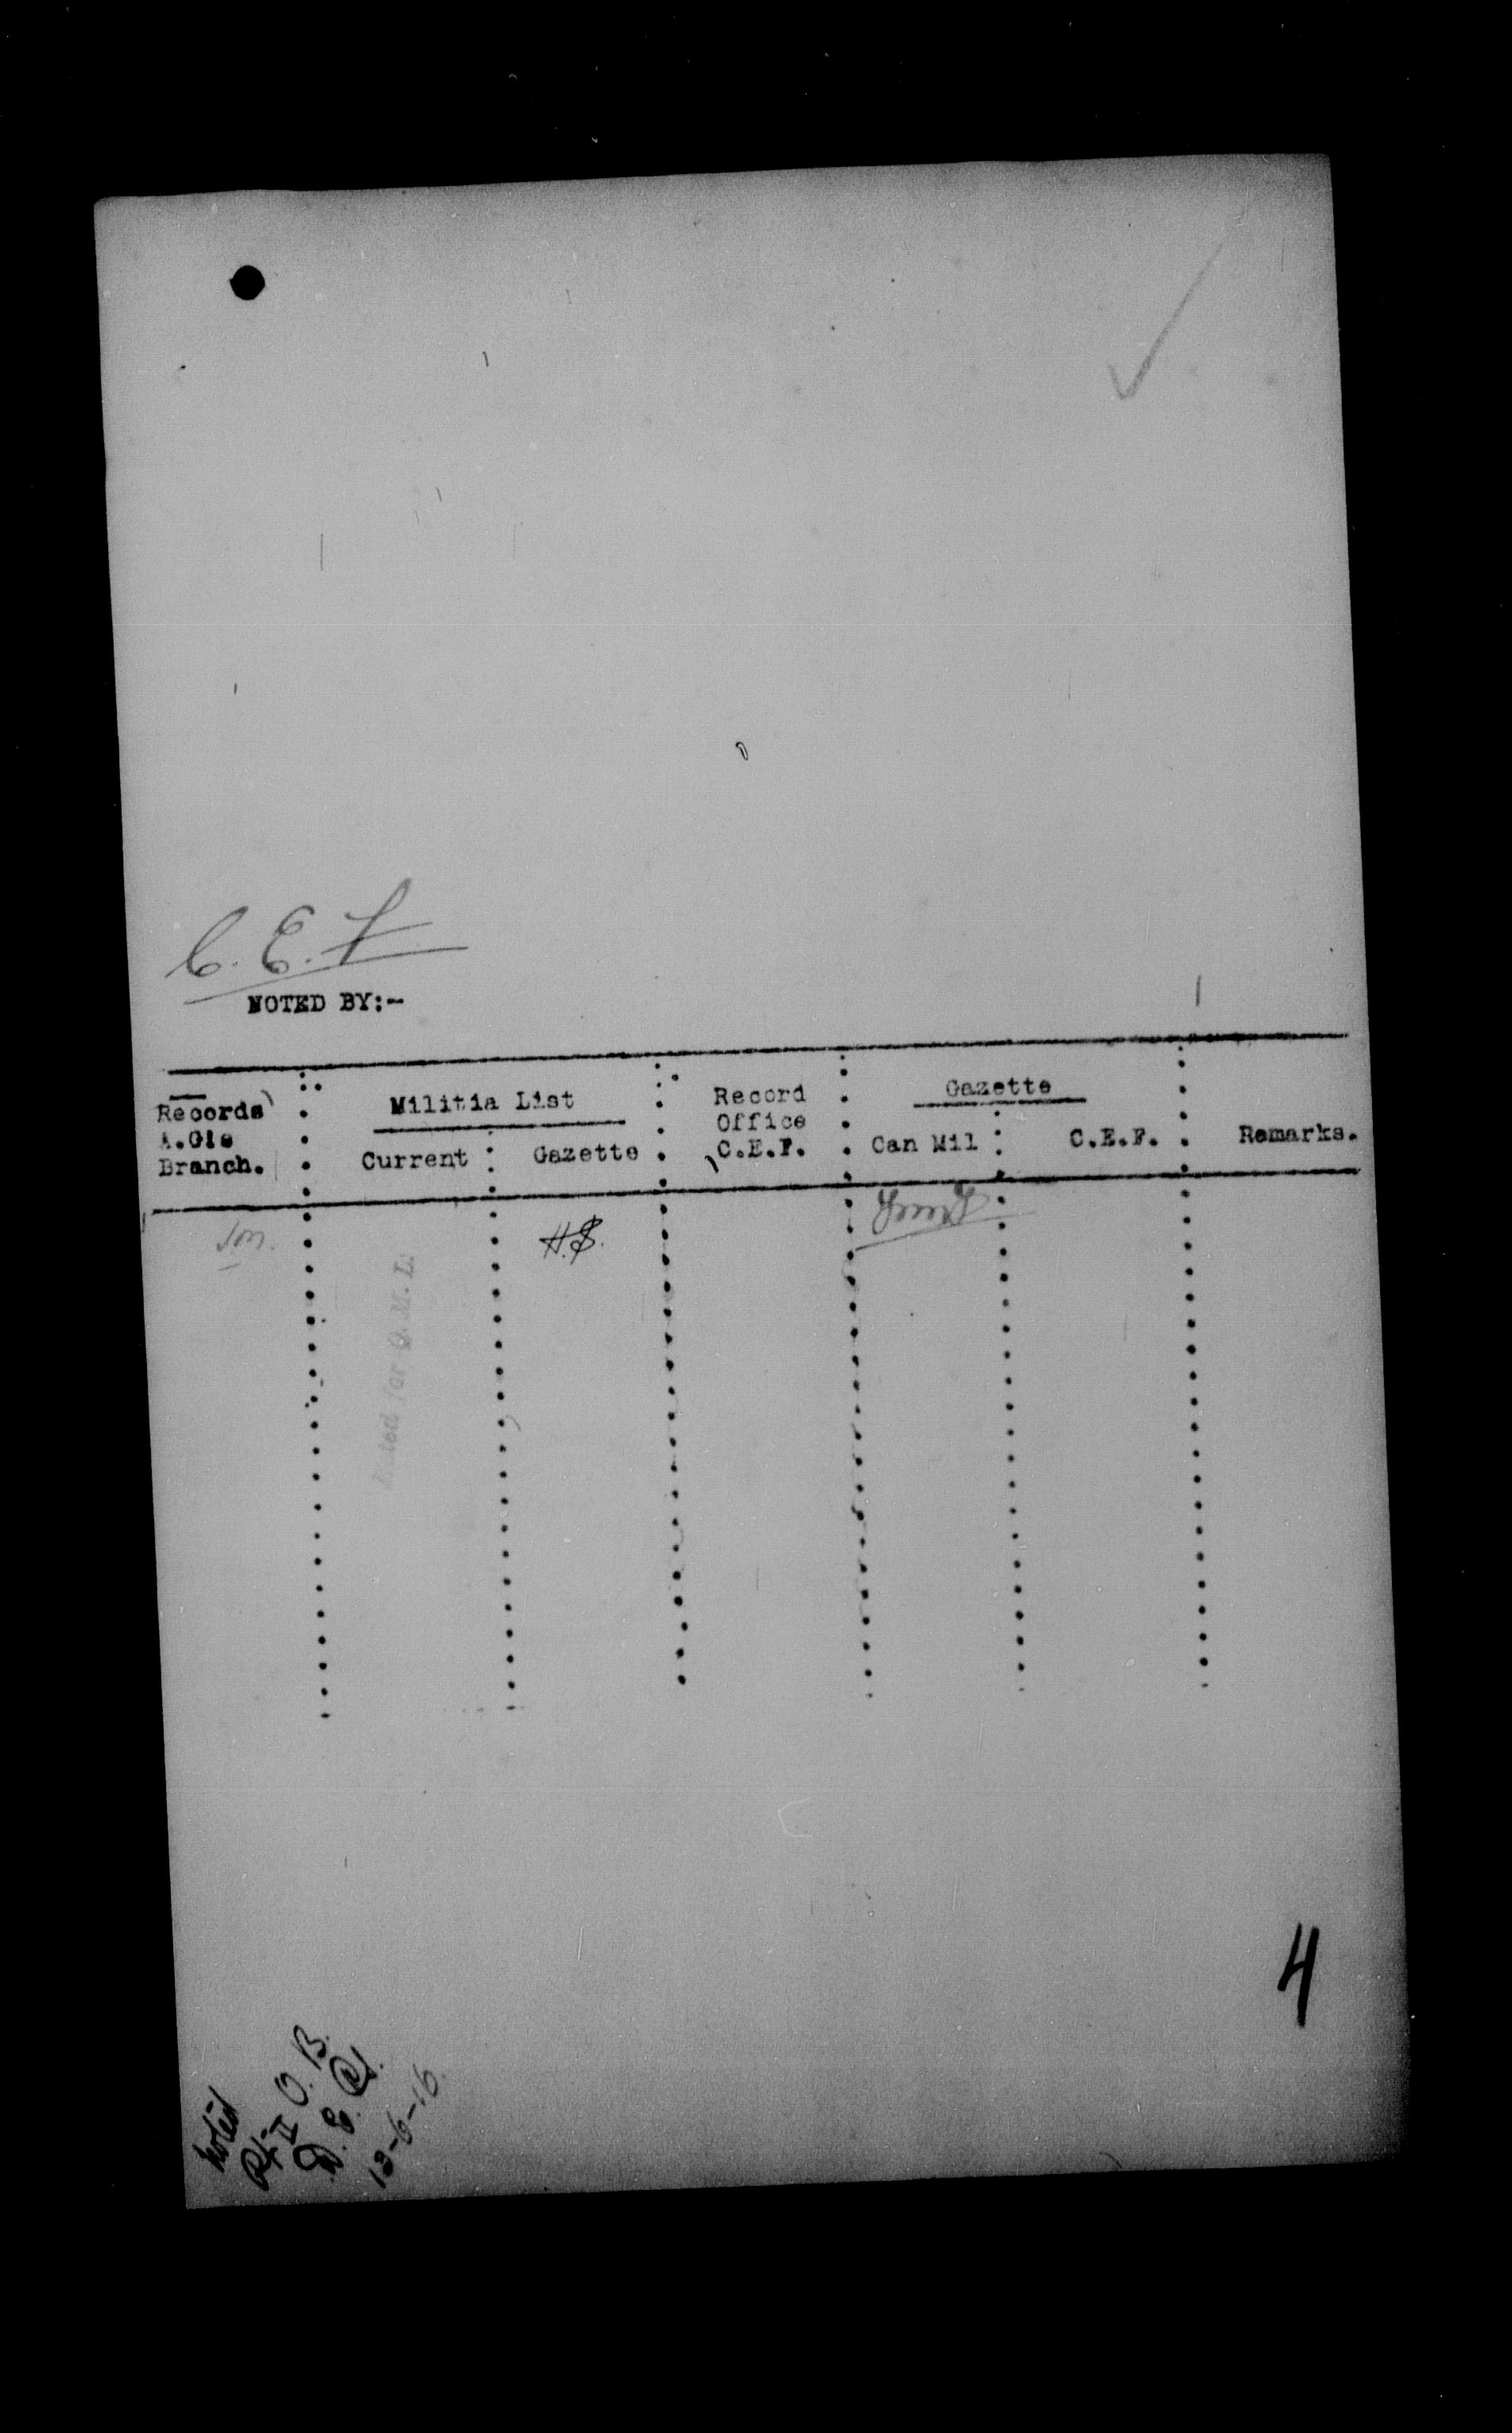 C.E.F
NOTED BY:-
Records
A.G's
Branch.
Militia List
Current : Gazette
Record
Office
C.E.F.
Gazette
Can Mil : C.E.F.
Remarks.
H.S.
Noted for Q.M.L.
4
Noted
Pt II O. B.
D. E. A.
13-6-16